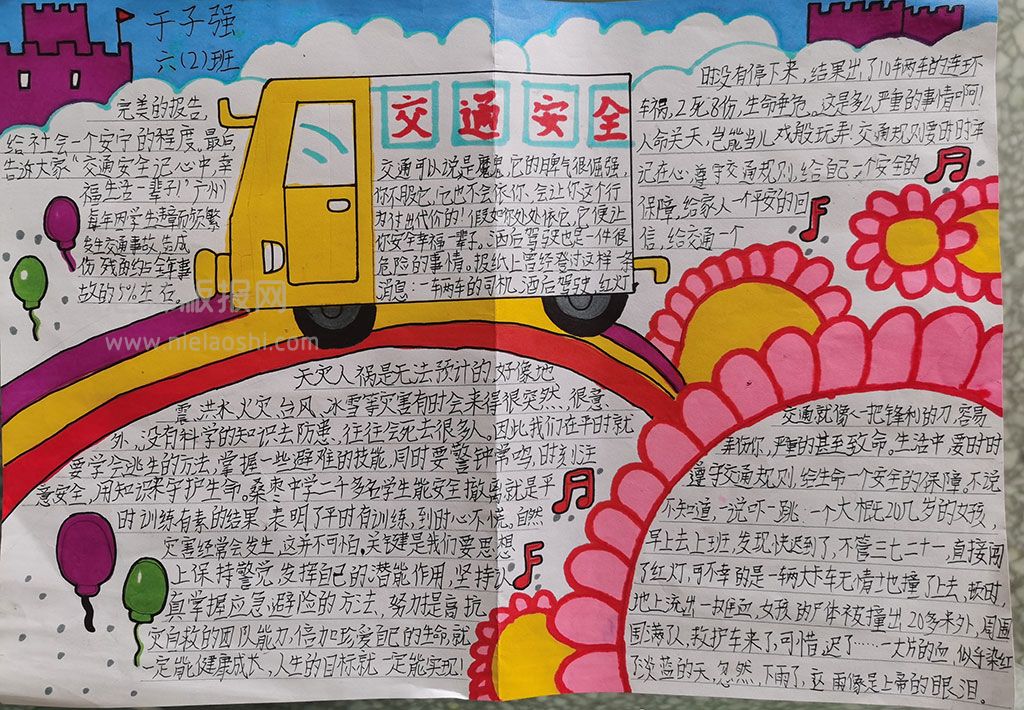 于子强
六(2)班
交通安全
完美的报告,
给社会一个安宁的程度。最后
告诉大家“交通安全记心中,幸
福生活一辈子!”广州
每年因学生违章而频繁
发生交通事故,造成
伤残百约占全年事
故的5%左右。
交通可以说是魔鬼,它的脾气很倔强,
你不服它,它也不会依你,会让你这个行
为付出代价的!假如你处处依它,它便让
你安全幸福一辈子。酒后驾驶也是一件很
危险的事情。报纸上曾经登过这样一条
消息:一车两车的司机,酒后驾驶,红灯
时没有停下来,结果出了10车两车的连环
车祸,2死8伤,生命垂危。这是多么严重的事情啊!
人命关天,岂能当儿戏般玩弄!交通规则要时时牢
记在心,遵守交通规则,给自己一个安全的
保障,给家人一个平安的回
信,给交通一个
天灾人祸是无法预计的,好像地
震、洪水、火灾、台风、冰雪等灾害有时会来得很突然,很意
外,没有科学的知识去防患,往往会死去很多人。因此我们在平时就
要学会逃生的方法,掌握一些避难的技能,同时要警钟常鸣,时刻注
意安全,用知识来守护生命。桑枣中学二千多名学生能安全撤离就是平
时训练有素的结果,表明了平时有训练,到时心不慌。自然
灾害经常会发生,这并不可怕。关键是我们要思想
上保持警觉,发挥自己的潜能作用,坚持认
真掌握应急避险的方法,努力提高抗
灾自救的团队能力,倍加珍爱自己的生命,就
一定能健康成长,人生的目标就一定能实现!
交通就像一把锋利的刀,容易
弄伤你,严重的甚至致命。生活中,要时时
遵守交通规则,给生命一个安全的保障。不说
不知道,一说吓一跳:一个大概20几岁的女孩,
早上去上班,发现快迟到了,不管三七二十一,直接闯
了红灯,可不幸的是一辆大卡车无情地撞了上去,顿时,
地上流出一大片血,女孩的尸体被撞出20多米外,周围
围满了人,救护车来了,可惜,迟了……一大片的血,似乎染红
了淡蓝的天,忽然,下雨了,这雨像是上帝的眼泪。
www.nielaoshi.com